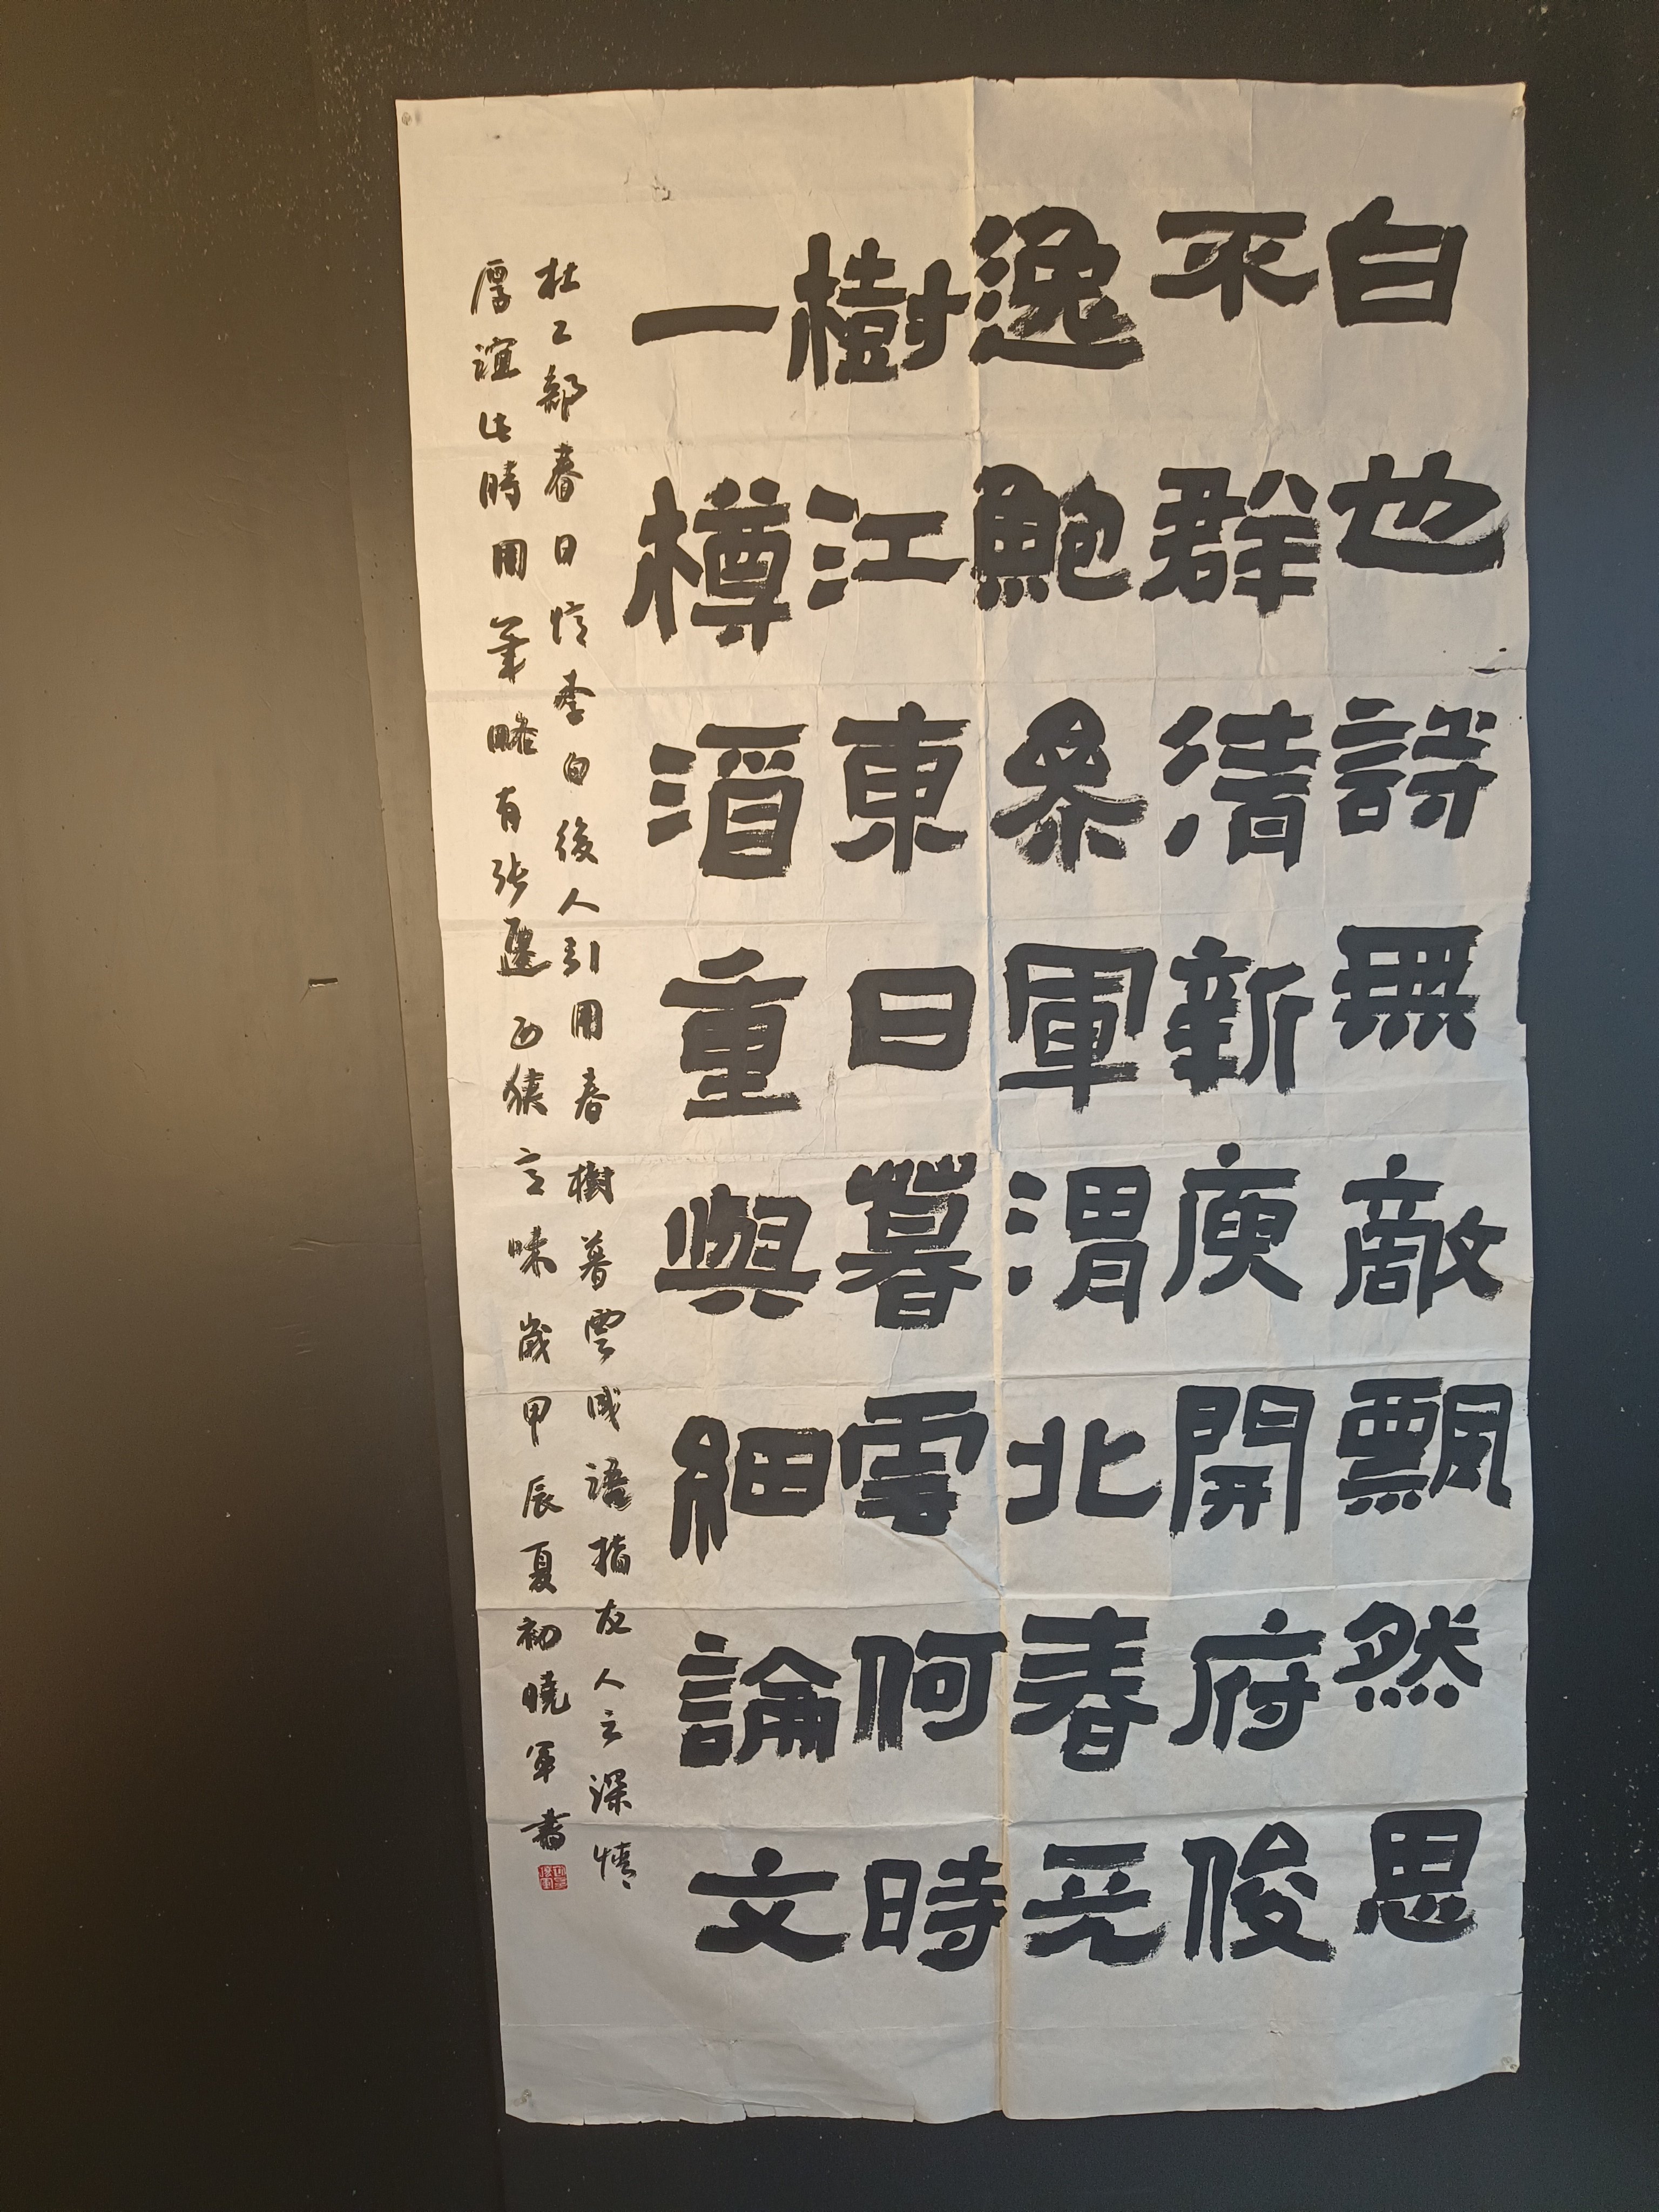 白也詩無敵飄然思
不群清新庾開府俊
逸鮑參軍渭北春天
樹江東日暮雲何時
一樽酒重與細論文
杜工部春日憶李白後人引用春樹暮雲成語指友人之深情
厚誼此時用筆略有張遷西狹之味歲甲辰夏初曉軍書